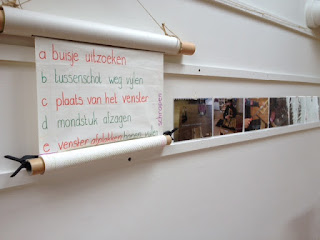 a buisje uitzoeken
b tussenschot weg vijlen
c plaats van het venster
d mondstuk afzagen
e venster
schrapen